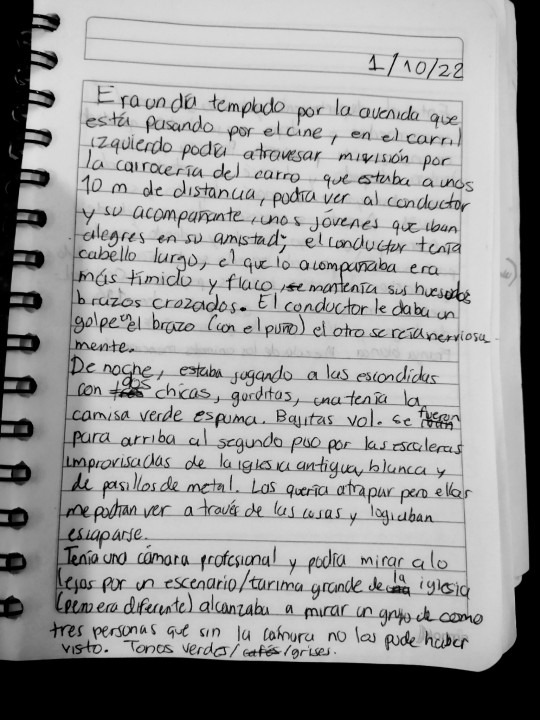 1/10/22
Era un día templado por la avenida que
está pasando por el cine, en el carril
izquierdo podía atravesar mi visión por
la carrocería del carro que estaba a unos
10 m de distancia, podía ver al conductor
y su acompañante, unos jóvenes que iban
alegres en su amistad; el conductor tenía
cabello largo, el que lo acompañaba era
más tímido y flaco, se mantenía sus huesudos
brazos cruzados. El conductor le daba un
golpe en el brazo (con el puño) el otro se reía nerviosa-
mente.
De noche, estaba jugando a las escondidas
con dos chicas, gorditas, una tenía la
camisa verde espuma. Bajitas vol. se fueron
para arriba al segundo piso por las escaleras
improvisadas de la iglesia antigua, blanca y
de pasillos de metal. Las quería atrapar pero ellas
me podían ver a través de las cosas y lograban
escaparse.
Tenía una cámara profesional y podía mirar a lo
lejos por un escenario/tarima grande de la iglesia
(pero era diferente) alcanzaba a mirar un grupo de como
tres personas que sin la cámara no las pude haber
visto. Tonos verdes/cafés/grises.